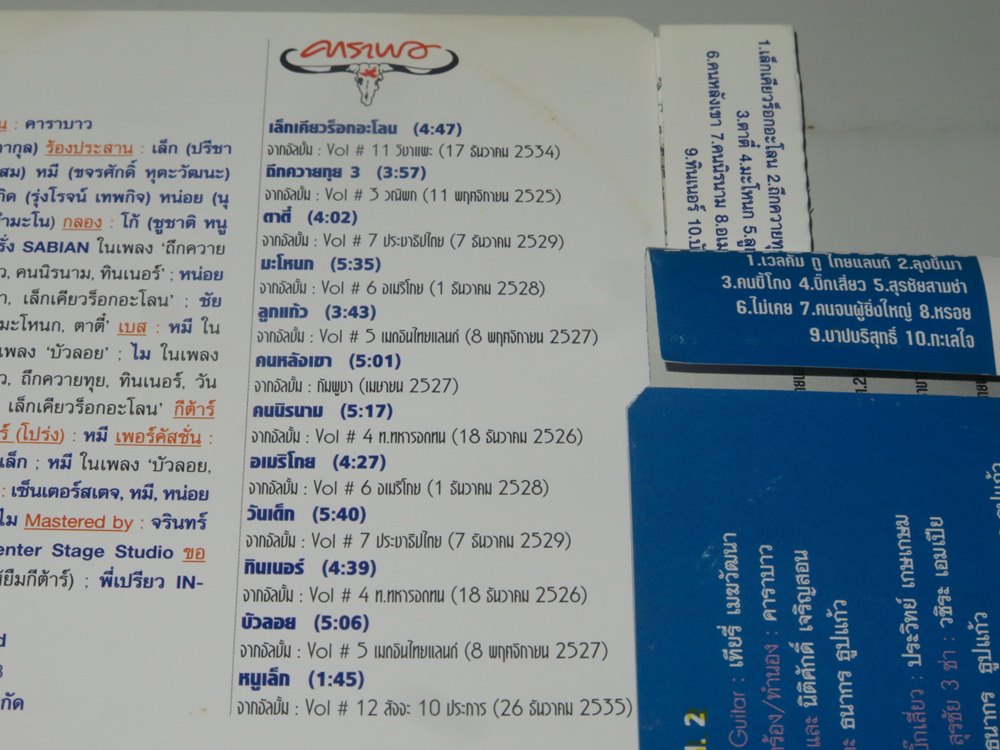 คาราบาว
น : คาราบาว
ากุล) ร้องประสาน : เล็ก (ปรีชา
สม) หมี (ขจรศักดิ์ หุตะวัฒนะ)
กิด (รุ่งโรจน์ เทพกิจ) หน่อย (นุ
ทำมะโน) กลอง : โก้ (ชูชาติ หนู
รั่ง SABIAN ในเพลง 'ถึกควาย
ว, คนนิรนาม, ทินเนอร์' ; หน่อย
า, เล็กเคียวร็อกอะโลน' ; ชัย
มะโหนก, ตาตี๋' เบส : หมี ใน
เพลง 'บัวลอย' ; ไม ในเพลง
ว, ถึกควายทุย, ทินเนอร์, วัน
เล็กเคียวร็อกอะโลน' กีต้าร์
ร์ (โปร่ง) : หมี เพอร์คัสชั่น :
เล็ก ; หมี ในเพลง 'บัวลอย,
: เซ็นเตอร์สเตจ, หมี, หน่อย
ไม Mastered by : จรินทร์
enter Stage Studio ขอ
ยืมกีต้าร์) ; พี่เปรียว IN-
d
กัด
เล็กเคียวร็อกอะโลน (4:47)
จากอัลบั้ม : Vol # 11 วิชาแพะ (17 ธันวาคม 2534)
ถึกควายทุย 3 (3:57)
จากอัลบั้ม : Vol # 3 วณิพก (11 พฤศจิกายน 2525)
ตาตี๋ (4:02)
จากอัลบั้ม : Vol # 7 ประชาธิปไตย (7 ธันวาคม 2529)
มะโหนก (5:35)
จากอัลบั้ม : Vol # 6 อเมริโกย (1 ธันวาคม 2528)
ลูกแก้ว (3:43)
จากอัลบั้ม : Vol # 5 เมดอินไทยแลนด์ (8 พฤศจิกายน 2527)
คนหลังเขา (5:01)
จากอัลบั้ม : กัมพูชา (เมษายน 2527)
คนนิรนาม (5:17)
จากอัลบั้ม : Vol # 4 ท.ทหารอดทน (18 ธันวาคม 2526)
อเมริโกย (4:27)
จากอัลบั้ม : Vol # 6 อเมริโกย (1 ธันวาคม 2528)
วันเด็ก (5:40)
จากอัลบั้ม : Vol # 7 ประชาธิปไตย (7 ธันวาคม 2529)
ทินเนอร์ (4:39)
จากอัลบั้ม : Vol # 4 ท.ทหารอดทน (18 ธันวาคม 2526)
บัวลอย (5:06)
จากอัลบั้ม : Vol # 5 เมดอินไทยแลนด์ (8 พฤศจิกายน 2527)
หนูเล็ก (1:45)
จากอัลบั้ม : Vol # 12 สัจจะ 10 ประการ (26 ธันวาคม 2535)
1.เล็กเคียวร็อกอะโลน 2.ถึกควายทุ
3.ตาตี๋ 4.มะโหนก 5.ลู
6.คนหลังเขา 7.คนนิรนาม 8.อเม
9.ทินเนอร์ 10.บั
1.เวลคัม ทู ไทยแลนด์ 2.ลุงขี้เมา
3.คนขี้โกง 4.บิ๊กเสี่ยว 5.สุรชัยสามช่า
6.ไม่เคย 7.คนจนผู้ยิ่งใหญ่ 8.หรอย
9.บาปบริสุทธิ์ 10.ทะเลใจ
ป. 2
Guitar : เทียรี่ เมฆวัฒนา
ร้อง/ทำนอง : คาราบาว
และ นิติศักดิ์ เจริญสอน
ะ ธนากร ธูปแก้ว
บิ๊กเสี่ยว : ประวิทย์ เกษเกษม
สุรชัย 3 ช่า : วชิระ เอมเปีย
ธนากร ธูปแก้ว